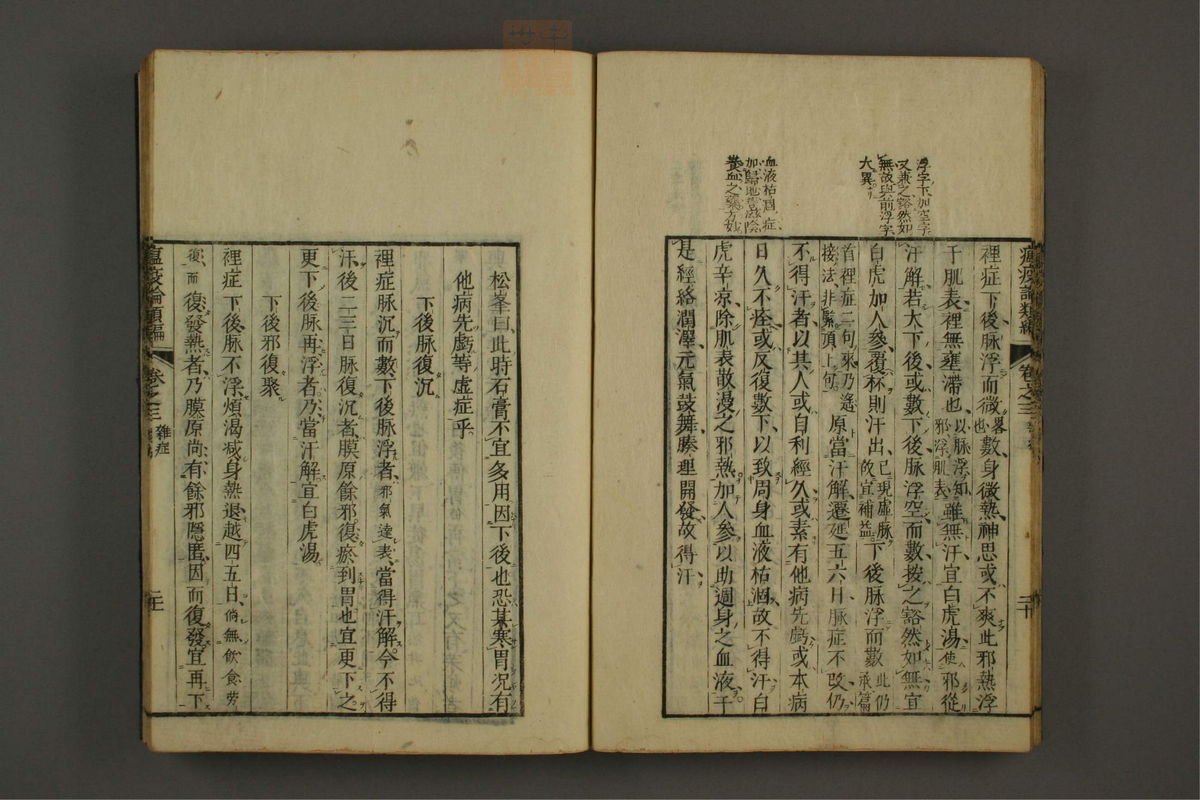 浮字下加空字
又兼之豁然如
無故與前浮字
大異
血液枯涸症
加歸地當滋陰
養血之藥方妙
瘟疫論類編 卷之三
裡症下後脉浮而微數身微熱神思或不爽此邪熱浮
畧也
于肌表裡無壅滯也雖無汗宜白虎湯
以脉浮知邪浮肌表
使邪從
汗解若大下後或數下後脉浮空而數按之豁然如無宜
白虎加人參覆杯則汗出下後脉浮而數
已現虛脉故宜補益
此仍承篇
首裡症二句來乃遙接法非緊頂上句
原當汗解遷延五六日脉症不改仍
不得汗者以其人或自利經久或素有他病先虧或本病
日久不痊或反復數下以致周身血液枯涸故不得汗白
虎辛凉除肌表散漫之邪熱加人參以助週身之血液于
是經絡潤澤元氣鼓舞腠理開發故得汗
松峯曰此時石膏不宜多用因下後也恐其寒胃况有
他病先虧等虛症乎
下後脉復沉
裡症脉沉而數下後脉浮者邪氣達表當得汗解今不得
汗後二三日脉復沉者膜原餘邪復瘀到胃也宜更下之
更下後脉再浮者乃當汗解宜白虎湯
下後邪復聚
裡症下後脉不浮煩渴減身熱退越四五日倘無飲食勞
復而復發熱者乃膜原尚有餘邪隱匿因而復發宜再下
瘟疫論類編 卷之三 雜症